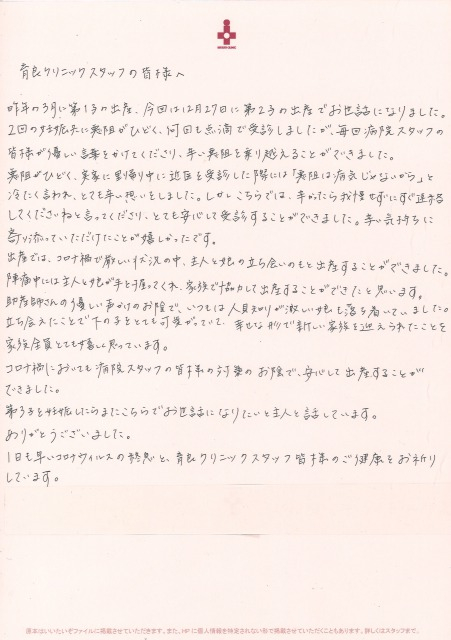 育良クリニックスタッフの皆様へ
昨年の3月に第1子の出産、今回は12月27日に第2子の出産でお世話になりました。
2回の妊娠共に悪阻がひどく、何回も点滴で受診しましたが、毎回病院スタッフの
皆様が優しい言葉をかけてくださり、辛い悪阻を乗り越えることができました。
悪阻がひどく、実家に里帰り中に近医を受診した際には「悪阻は病気じゃないから」と
冷たく言われ、とても辛い想いをしました。しかしこちらでは、辛かったら我慢せずにすぐ連絡
してくださいねと言ってくださり、とても安心して受診することができました。辛い気持ちに
寄り添っていただけたことが嬉しかったです。
出産では、コロナ禍で厳しい状況の中、主人と娘の立ち会いのもと出産することができました。
陣痛中には主人と娘が手を握ってくれ、家族で協力して出産することができたと思います。
助産師さんの優しい声かけのお陰で、いつもは人見知りが激しい娘も落ち着いていました。
立ち会えたことで下の子をとても可愛がっていて、幸せな形で新しい家族を迎えられたことを
家族全員とても嬉しく思っています。
コロナ禍においても病院スタッフの皆様の対策のお陰で、安心して出産することが
できました。
第3子を妊娠したらまたこちらでお世話になりたいと主人と話しています。
ありがとうございました。
1日も早いコロナウィルスの終息と、育良クリニックスタッフ皆様のご健康をお祈り
しています。
原本はいいたいぞファイルに掲載させていただきます。また、HPに個人情報を特定されない形で掲載させていただくこともあります。詳しくはスタッフまで。